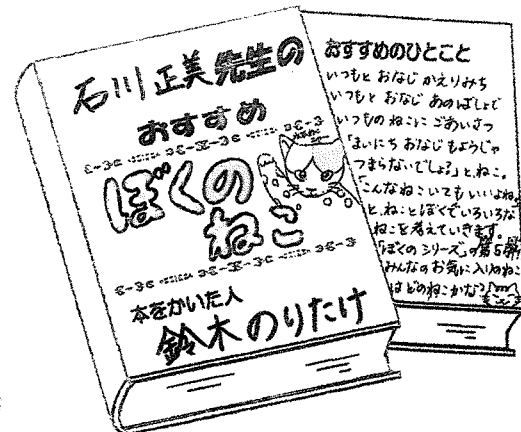 石川 正美 先生の
おすすめ
ぼくの
ねこ
本をかいた人
鈴木のりたけ
おすすめのひとこと
いつもと おなじ かえりみち
いつもと おなじ あのばしょで
いつもの ねこに ごあいさつ
「まいにち おなじ もようじゃ
つまらないでしょ?」と、ねこ。
「こんな ねこ いても いいよね。」
と、ねことぼくでいろいろな
ねこを 考えていきます。
「ぼくの シリーズ」の 第5弾!!
みんなの お気に入りの ねこ
は どの ねこかな?